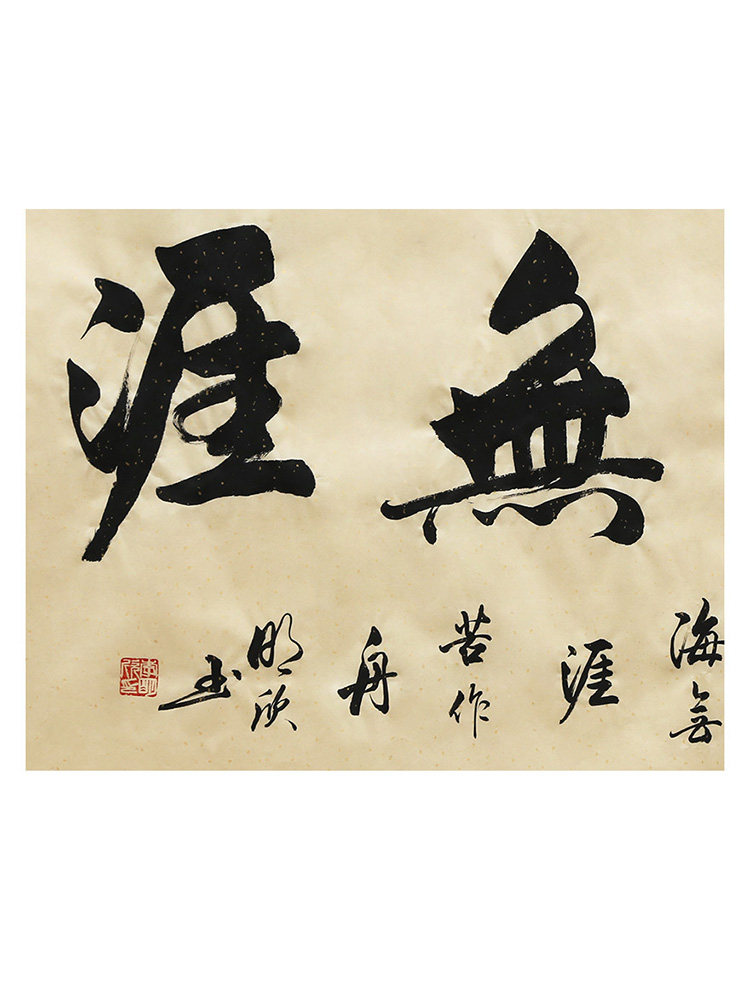 無涯
海無
涯
苦作
舟
明欣
书